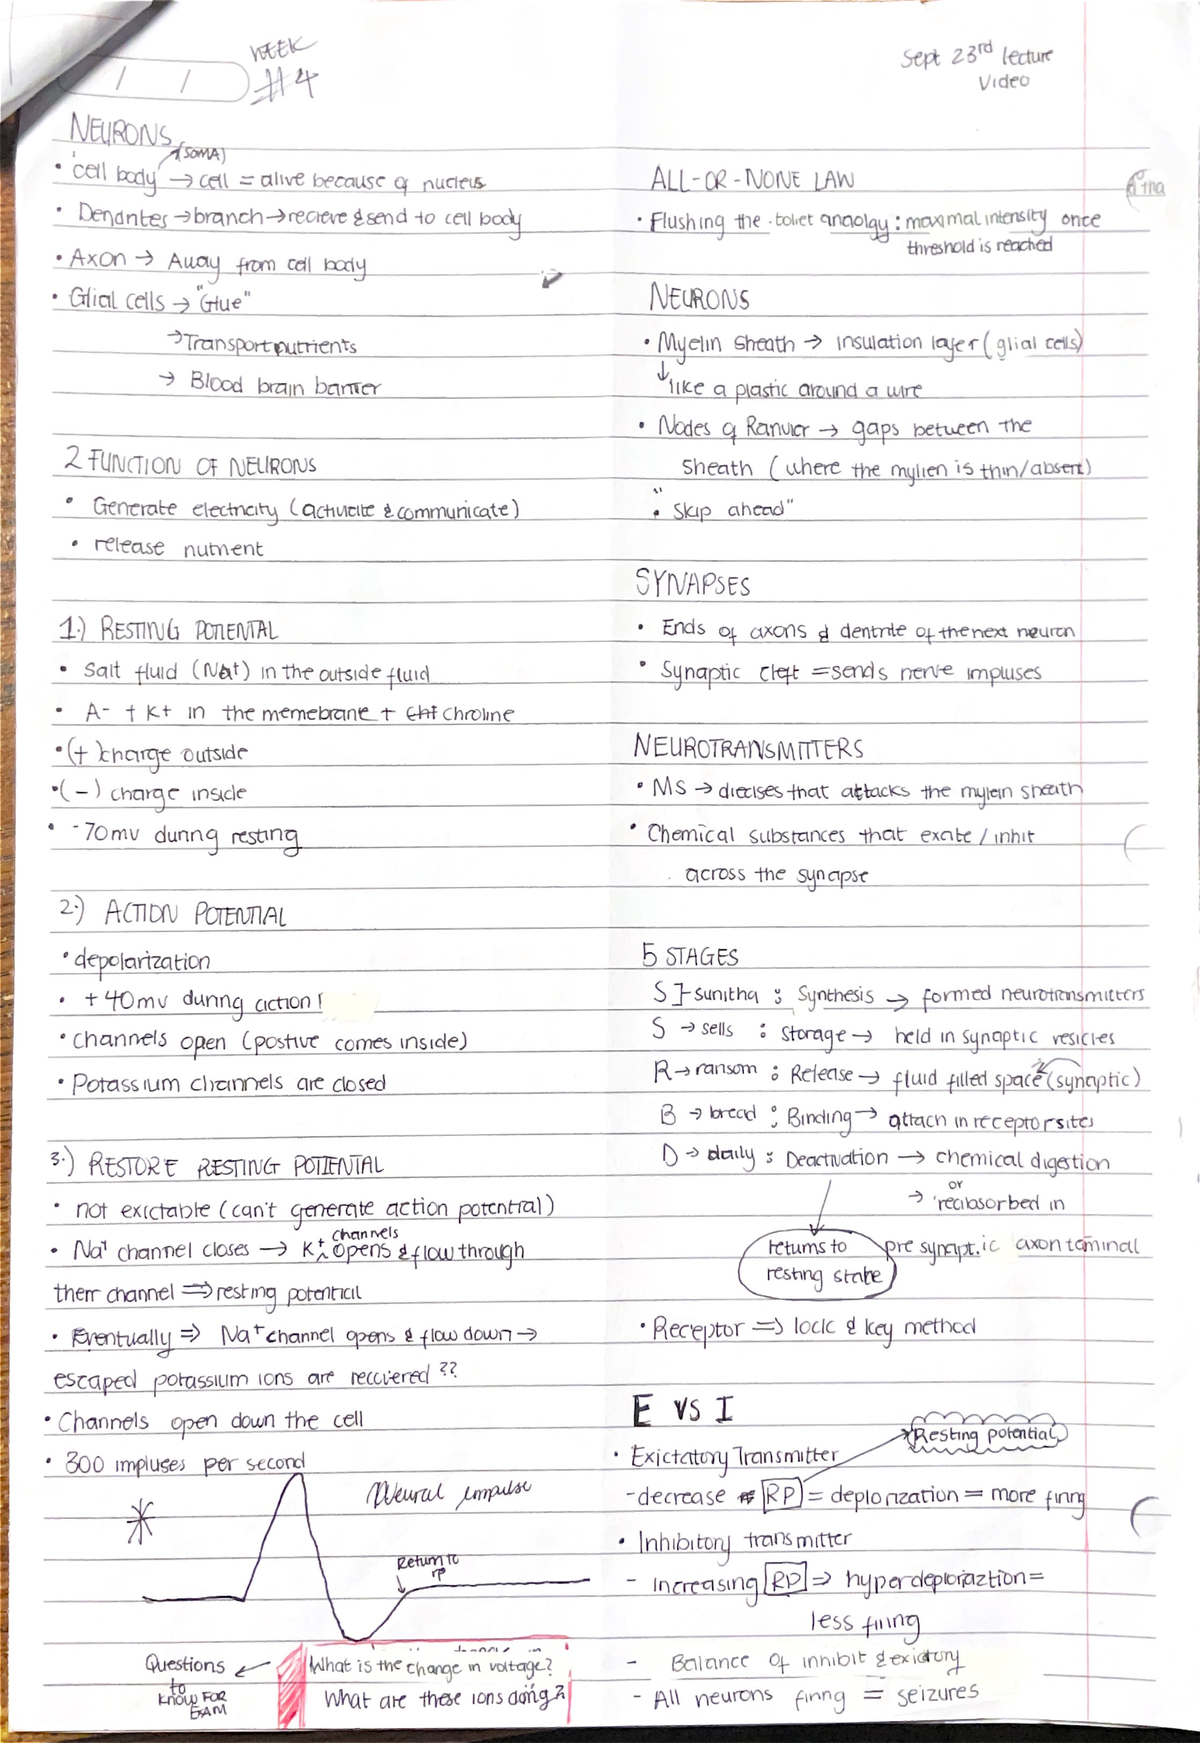 WEEK
#4
Sept 23rd lecture
Video
NEURONS
(SOMA)
• cell body → cell = alive because of nucleus
• Dendrites → branch → recieve & send to cell body
• Axon → Away from cell body
• Glial cells → "Glue"
→ Transport nutrients
→ Blood brain barrier
2 FUNCTION OF NEURONS
• Generate electricity (activate & communicate)
• release nutrient
1.) RESTING POTENTAL
• Salt fluid (Na+) in the outside fluid
• A- + K+ in the memebrane + chroline
• (+) charge outside
• (-) charge inside
• -70mv during resting
2.) ACTION POTENTIAL
• depolarization
• +40mv during action!
• channels open (postive comes inside)
• Potassium channels are closed
3.) RESTORE RESTING POTIENTAL
• not exictable (can't generate action potential)
channels
• Na+ channel closes → K+ ^ opens & flow through
therr channel ⇒ resting potential
• Eventually ⇒ Na+ channel opens & flow down →
escaped potassium ions are recovered ??
• Channels open down the cell
• 300 impluses per second
Neural impulse
Return to
rp
Questions
to
KNOW FOR
EXAM
What is the change in voltage?
What are these ions doing?
ALL-OR-NONE LAW
• Flushing the toliet anaolgy: maximal intensity once
threshold is reached
NEURONS
• Myelin Sheath → insulation layer (glial cells)
↓ like a plastic around a wire
• Nodes of Ranvier → gaps between the
sheath (where the mylien is thin/absent)
• "Skip ahead"
SYNAPSES
• Ends of axons & dentrite of the next neuron
• Synaptic cleft = sends nerve impluses
NEUROTRANSMITTERS
• MS → diecises that attacks the mylein sheath
• Chemical substances that exate / inhit
across the synapse
5 STAGES
S → sunitha : Synthesis → formed neurotransmitters
S → sells : storage → held in synaptic vesicles
R → ransom : Release → fluid filled space (synaptic)
B → bread : Binding → attach in receptor sites
D → daily : Deactivation → chemical digestion
or
→ reabsorbed in
pre synaptic axon taminal
returns to
resting state
• Receptor ⇒ lock & key method
E VS I
Resting potential
• Exictatory Transmitter
- decrease RP = deplorization = more firing
• Inhibitory transmitter
- increasing RP ⇒ hyperdeploriaztion =
less firing
- Balance of innibit & exictory
- All neurons firing = seizures